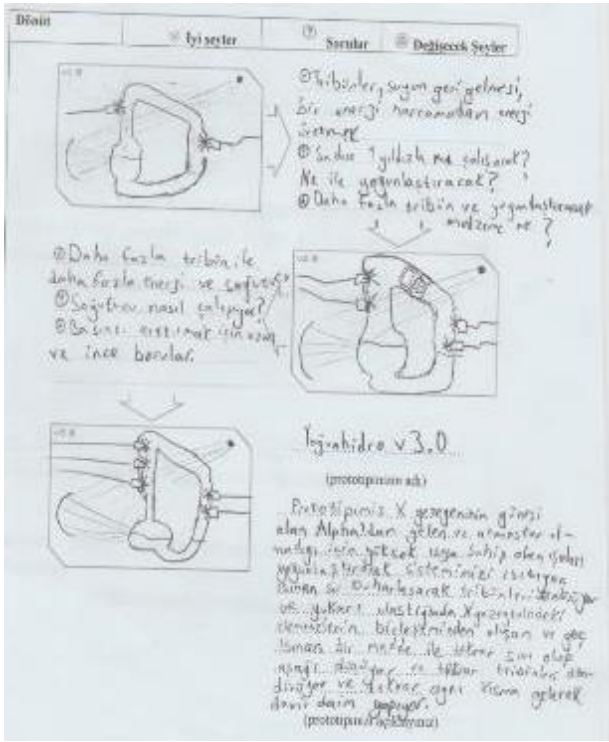 Dönüt
İyi şeyler
Sorular
Değişecek Şeyler
v1.0
Tribünler, suyun geri gelmesi,
bir enerji harcamadan enerji
üretmek
Sadece 1 yıldızla mı çalışacak?
Ne ile yoğunlaştıracak?
Daha fazla tribün ve yoğunlaştıracak
malzeme ne?
v2.0
Daha fazla tribün ile
daha fazla enerji ve soğutucu
Soğutucu nasıl çalışıyor?
Basıncı arttırmak için uzun
ve ince borular.
v3.0
Yoğunhidro v3.0
(prototipimin adı)
Prototipimiz X gezegeninin güneşi
olan Alpha'dan gelen ve atmosfer ol-
madığı için yüksek ısıya sahip olan ışınları
yoğunlaştırarak sistemimizi ısıtıyor
ısınan su buharlaşarak tribünleri döndürüyor
ve yukarı ulaştığında X gezegenindeki
elementlerin birleşiminden oluşan ve geç
ısınan bir madde ile tekrar sıvı olup
aşağı düşüyor ve tekrar tribünleri dön-
dürüyor ve tekrar aynı kısma gelerek
devir daim yapıyor.